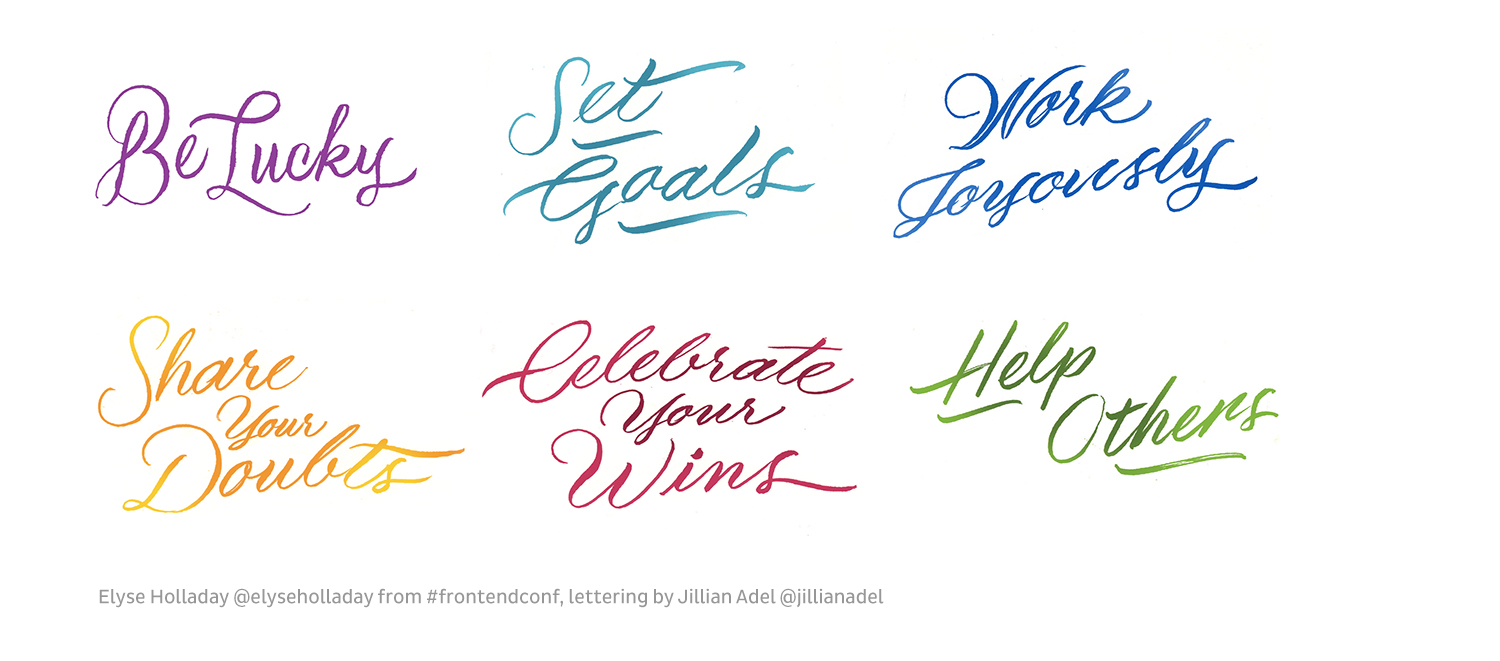 Be Lucky
Set
Goals
Work
Joyously
Share
Your
Doubts
Celebrate
Your
Wins
Help
Others
Elyse Holladay @elyseholladay from #frontendconf, lettering by Jillian Adel @jillianadel